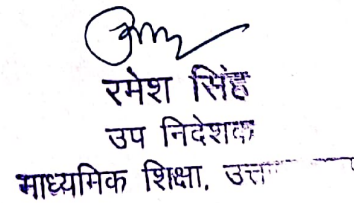 रमेश सिंह
उप निदेशक
माध्यमिक शिक्षा,